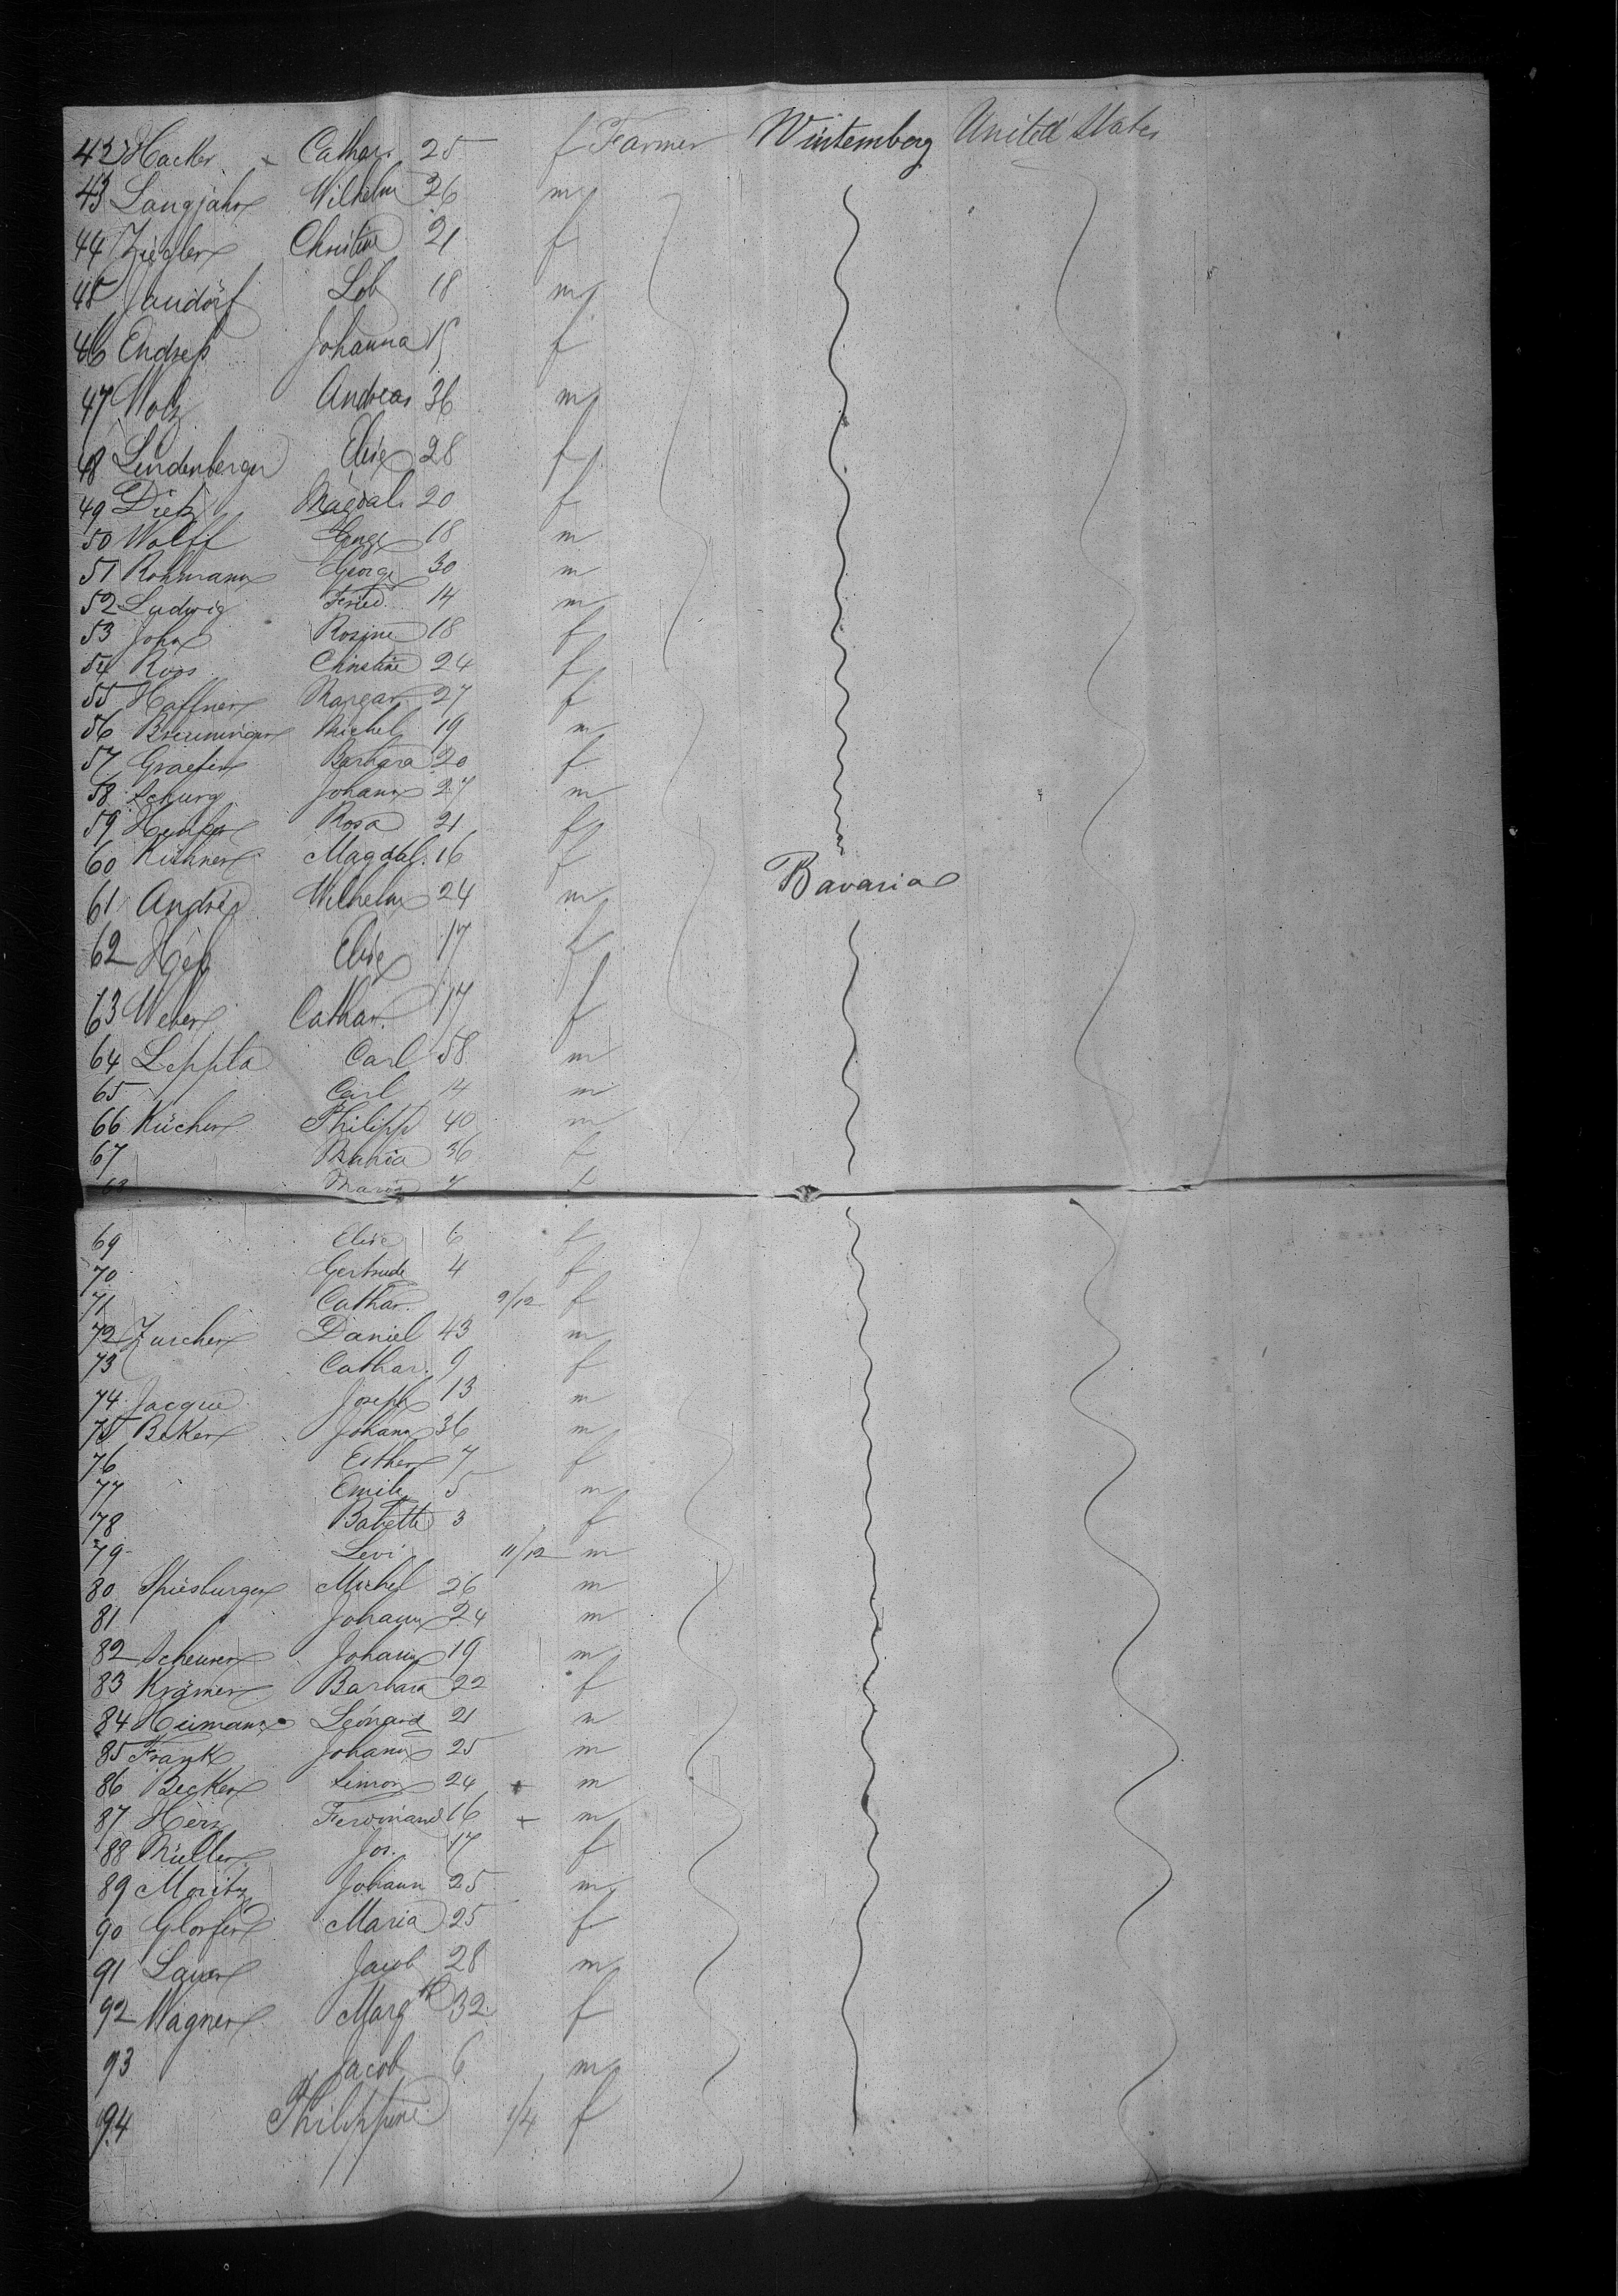 42 Hacker x Cathar. 25 f Farmer Würtemberg United States
43 Langjahr Wilhelm 26 m
44 Ziegler Christine 21 f
45 Jandorf Löb 18 m
46 Endreß Johanna f
47 Wolz Andreas 36 m
48 Lindenberger Elise 28 f
49 Dietz Magdal. 20 f
50 Wolff 18 m
51 Rohmann George 30 m
52 Ludwig Fried. 14 m
53 John Rosine 18 f
54 Roos Christine 24 f
55 Haffner Margar. 27 f
56 Breuninger Michel 19 m
57 Graefin Barbara 20 f
58 Schurg Johann 27 m
59 Rosa 21 f
60 Kühner Magdal. 16 f
61 André Wilhelm 24 m Bavaria
62 Heß Elise 17 f
63 Weber Cathar. 17 f
64 Leppla Carl 58 m
65 Carl 14 m
66 Kücher Philipp 40 m
67 Maria 36 f
68 Maria 7 f
69 Elise 6 f
70 Gertrude 4 f
71 Cathar. 9/12 f
72 Zurcher Daniel 43 m
73 Cathar. 9 f
74 Jacque Joseph 13 m
75 Beker Johann 36 m
76 Esther 7 f
77 Emile 5 m
78 Babette 3 f
79 Levi 11/12 m
80 Spiesburger Michel 26 m
81 Johann 24 m
82 Scheurer Johann 19 m
83 Krämer Barbara 22 f
84 Heimann Leonard 21 m
85 Frank Johann 25 m
86 Becker Simon 24 + m
87 Herz Ferdinand 16 + m
88 Müller Jos. 17 f
89 Moritz Johann 25 m
90 Maria 25 f
91 Lauer Jacob 28 m
92 Wagner Margth 32 f
93 Jacob 6 m
94 Philippine 1/4 f